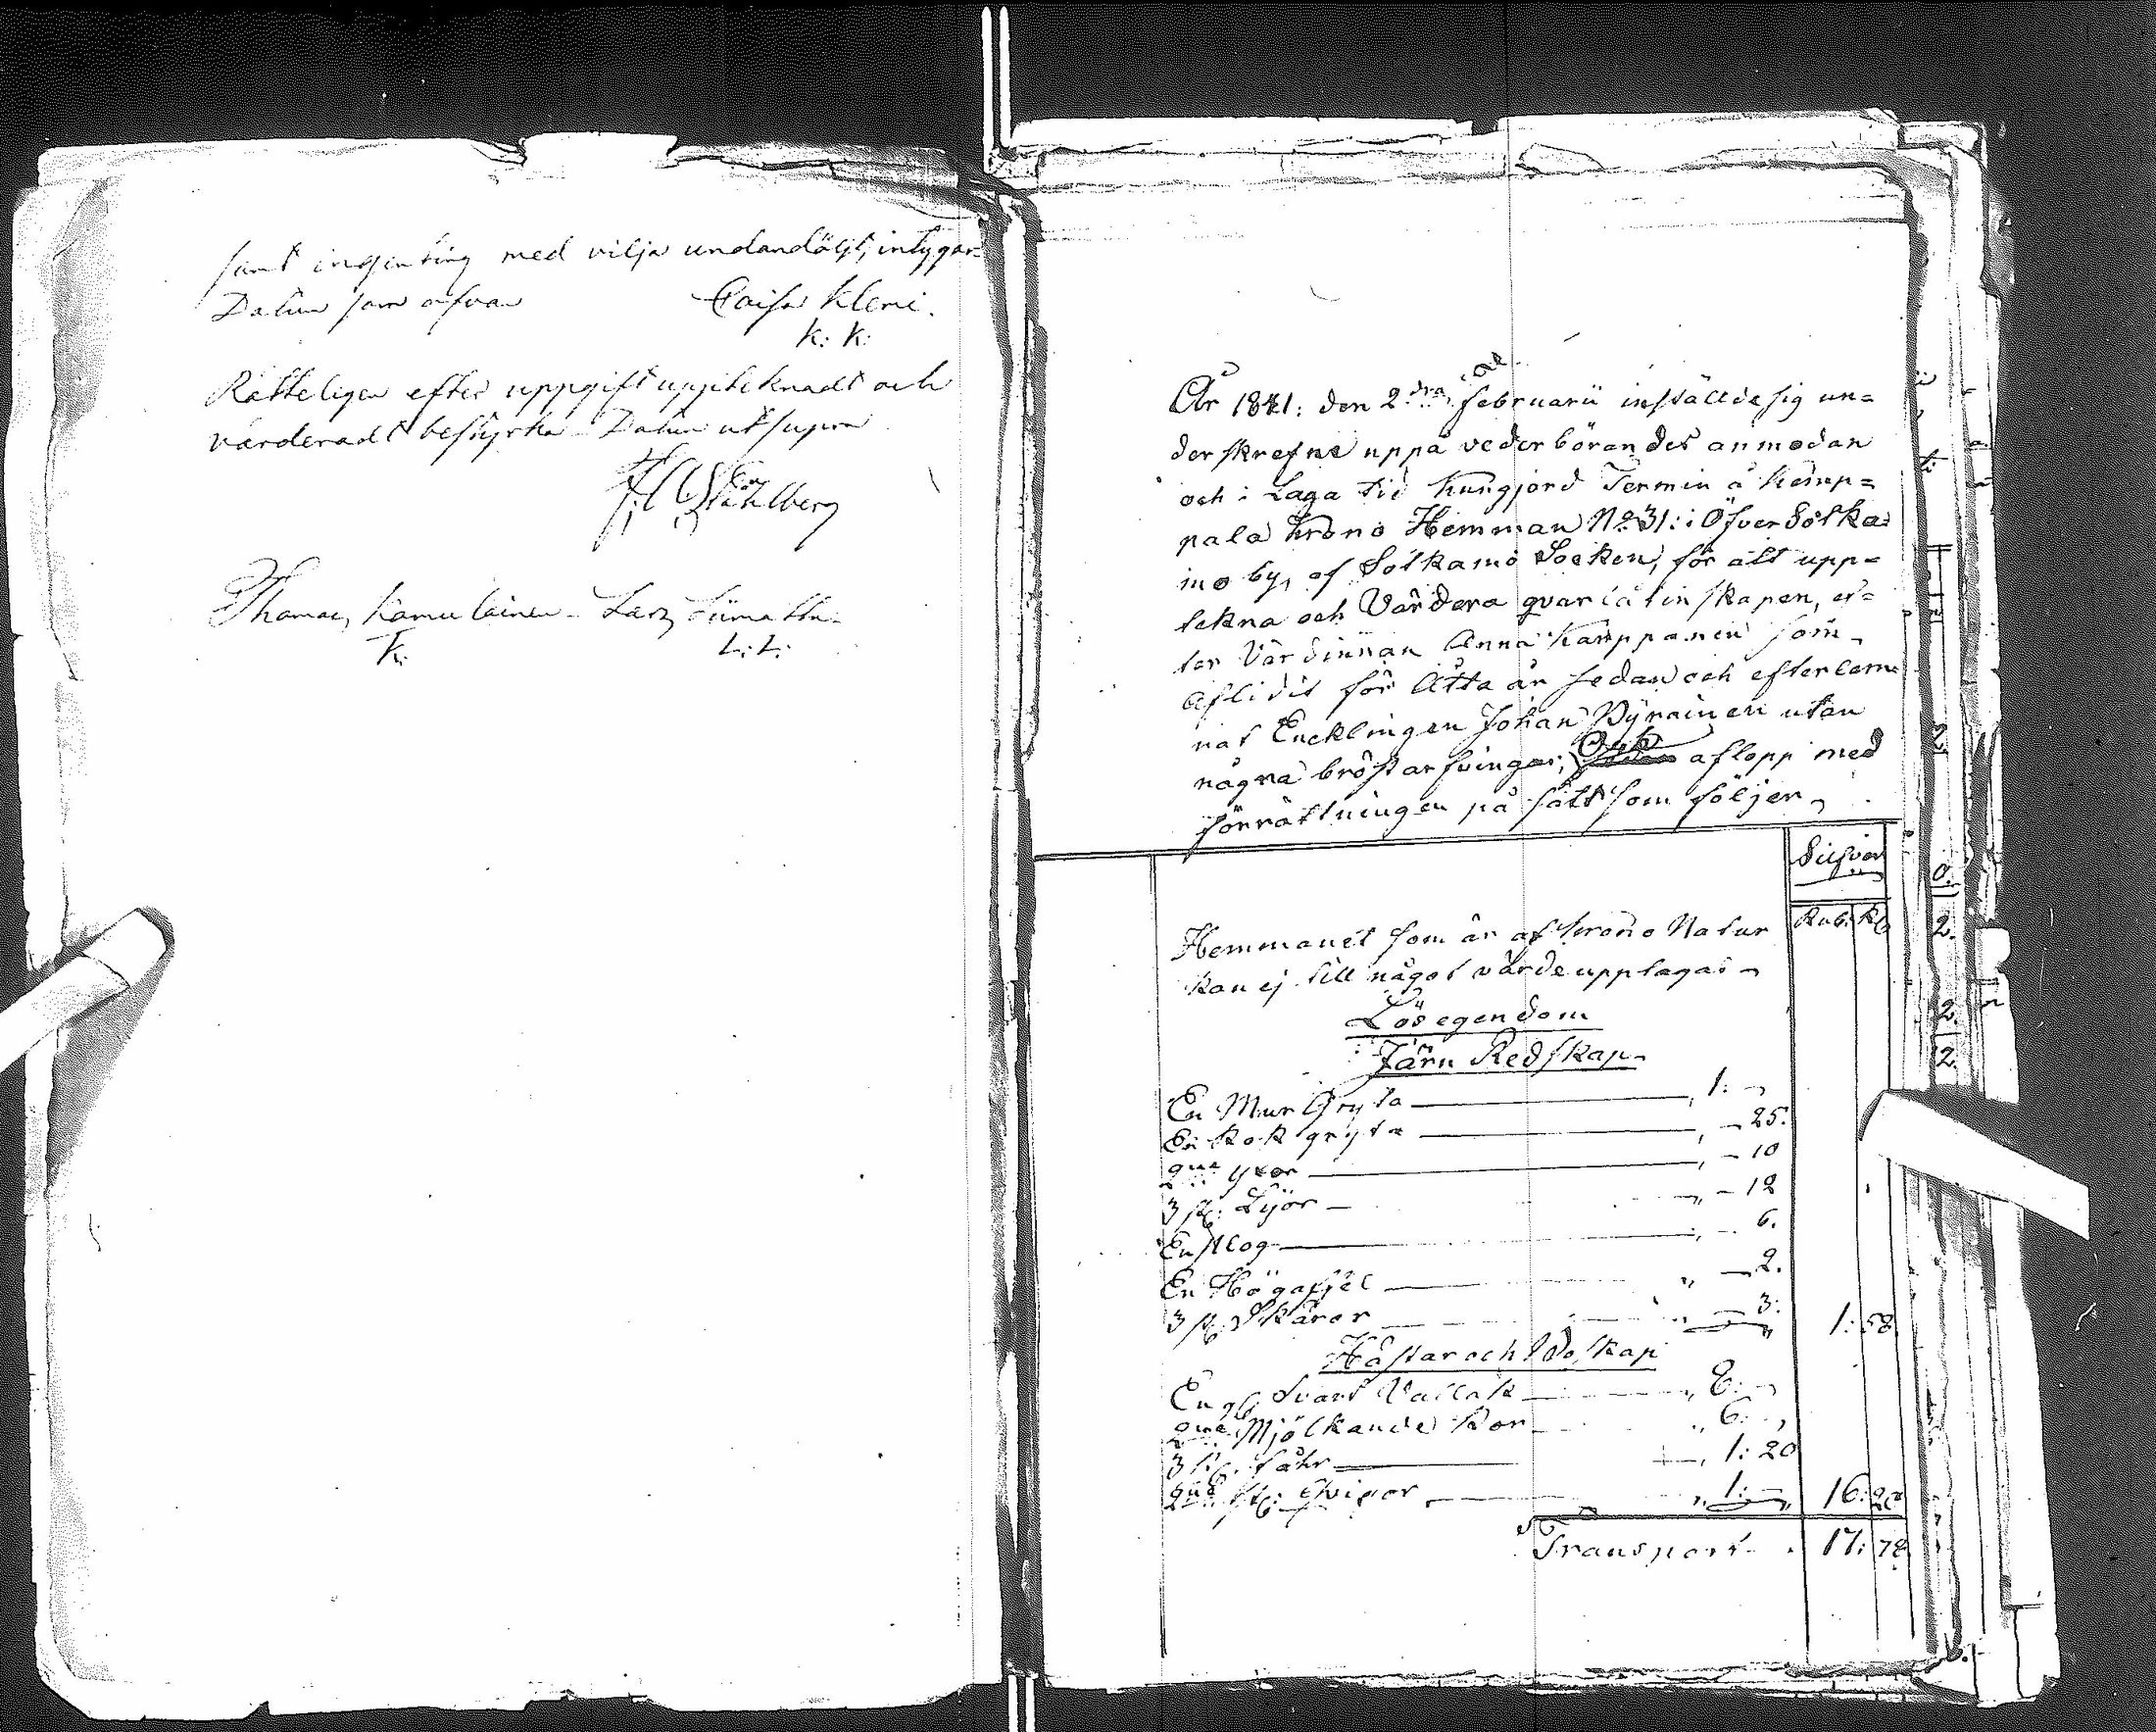 samt ingenting med vilja undandöljt, intygar
Datum som ofvan Caisa Kleni.
K: K:
Rätteligen efter uppgift uppteknadt och
värderadt bestyrka Datum ut supra
Ståhlberg
Thomas Kamulainen Lars
K. L: L:
År 1841: den 2dra Februarii instältde sig un=
derskrefne uppå vederbörandes anmodan
och i Laga tid kungjord Termin å Kemp=
pala krono Hemman No 31: i Öfver Sotka=
mo by, af Sotkamo Socken, för att upp=
tekna och Värdera qvarlåtinskapen, ef=
ter Värdinnan Anna Kamppanen som
aflidit för Åtta år sedan och efterlem=
nat Encklingen Johan Pyrainen utan
några bröstarfvingar; Och aflopp med
förrättningen på sätt som följer
Silfver
Rub. K
Hemmanet som är af krono Natur
kan ej till något värde upptagas
Lösegendom
Järn Redskap
En Mur Gryta 1: -
En kok gryta - 25.
2ne yxor - 10
3 st: Lijor - 12
En plog - 6.
En Högaffel - 2.
3 st: Skäror - 3: 1: 58.
Hästar och Boskap
En gl. Svart Vallak 8: -
2ne Mjölkande Kor 6: -
3 st: fåhr 1: 20
2ne st: Qvigor 1: - 16: 20
Transport 17: 78